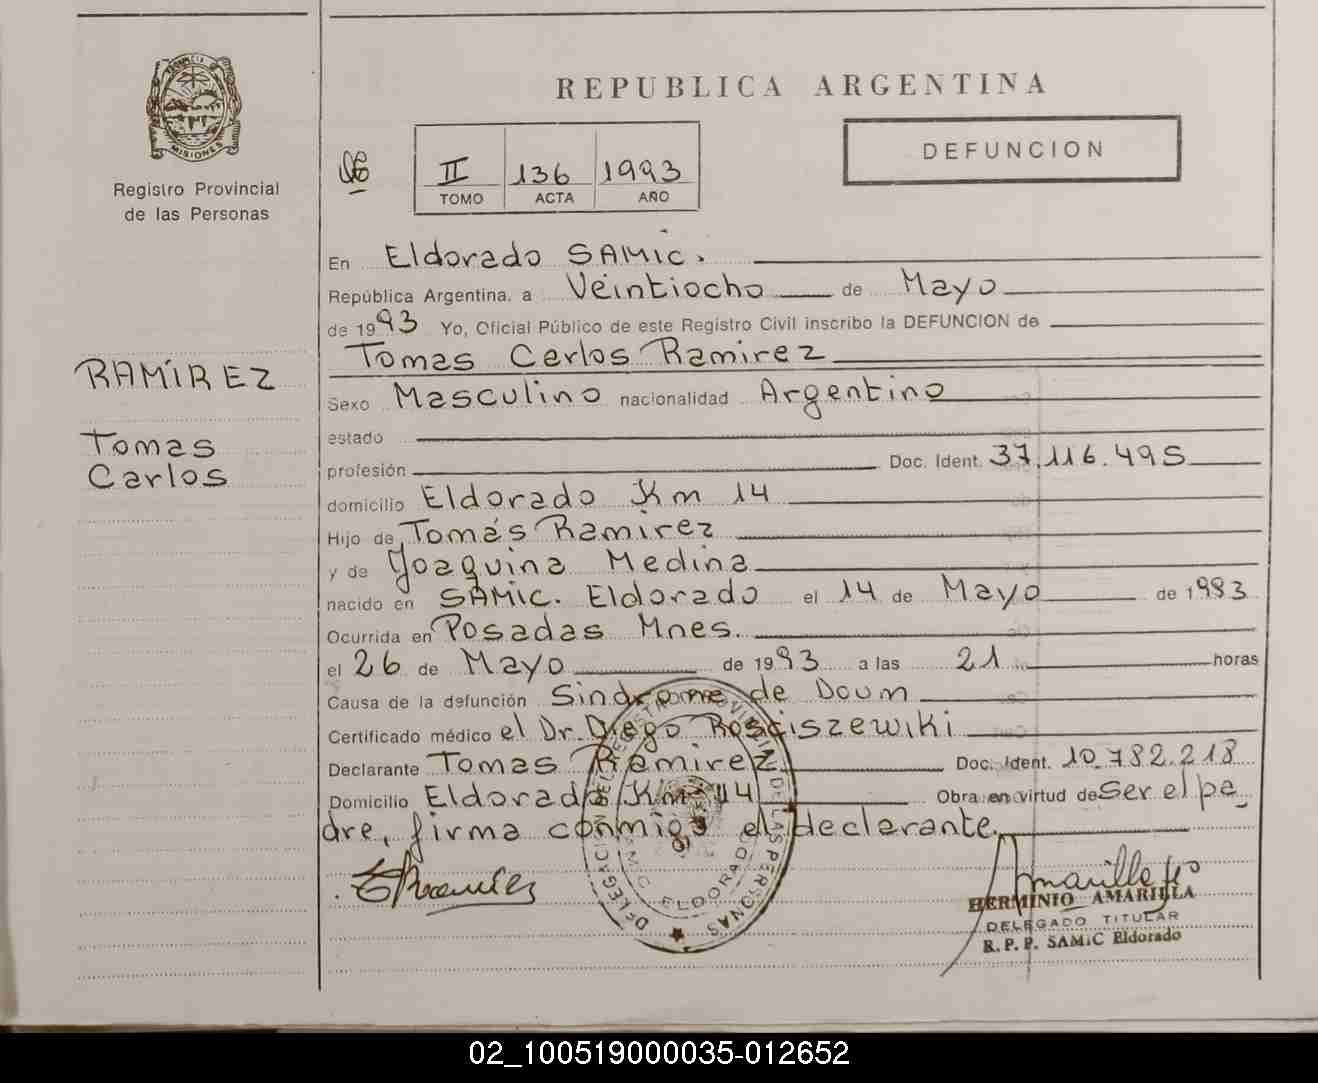 REPUBLICA ARGENTINA
DEFUNCION
MISIONES
Registro Provincial
de las Personas
II 136 1993
TOMO ACTA AÑO
En Eldorado SAMIC.
República Argentina, a Veintiocho de Mayo
de 1993 Yo, Oficial Público de este Registro Civil inscribo la DEFUNCION de
Tomas Carlos Ramirez
RAMÍREZ
Tomas
Carlos
Sexo Masculino nacionalidad Argentino
estado
profesión Doc. Ident. 37.116.495
domicilio Eldorado Km 14
Hijo de Tomás Ramirez
y de Joaquina Medina
nacido en SAMIC. Eldorado el 14 de Mayo de 1993
Ocurrida en Posadas Mnes.
el 26 de Mayo de 1993 a las 21 horas
Causa de la defunción Sindrome de Doum
Certificado médico el Dr. Diego Rosciszewiki
Declarante Tomas Ramirez Doc. Ident. 10.782.218
Domicilio Eldorado Km 14 Obra en virtud de Ser el pa_
dre, firma conmigo el declarante.
DELEGACION DEL REGISTRO PROVINCIAL DE LAS PERSONAS
SAMIC ELDORADO
HERMINIO AMARILLA
DELEGADO TITULAR
R. P. P. SAMIC Eldorado
02_100519000035-012652